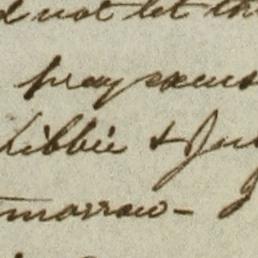 d not let th
pray excus
Libbie & Ju
morrow-